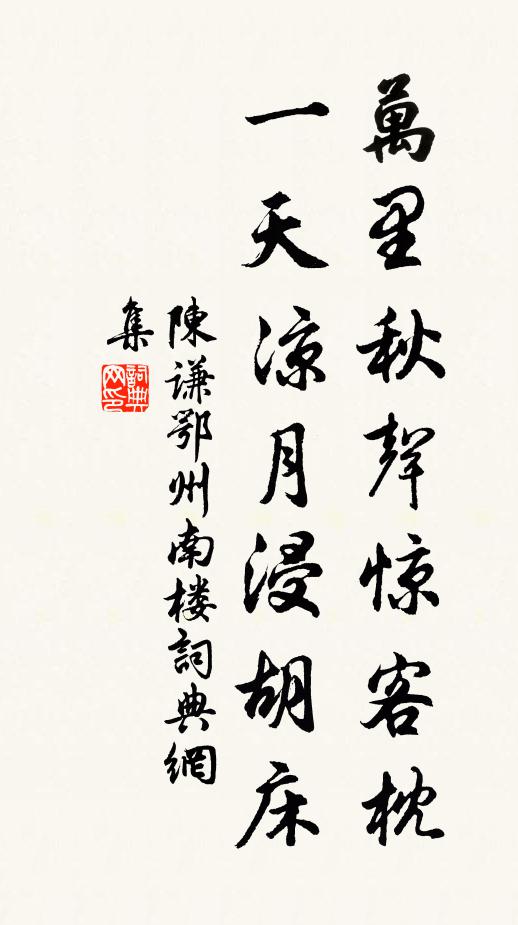 萬里秋聲惊客枕
一天凉月浸胡床
陳谦鄂州南楼詞典網
集
詞典
网印